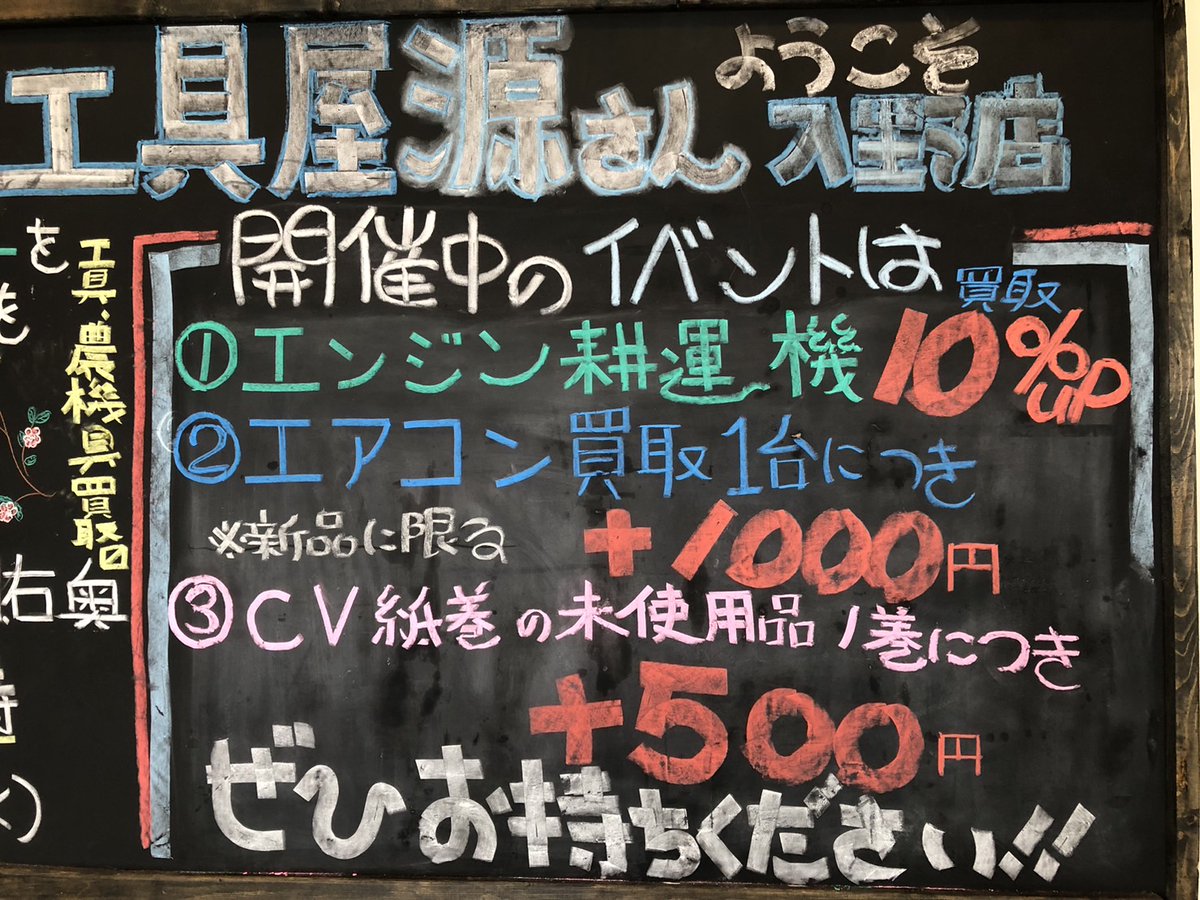 ようこそ
工具屋源さん 入野店
を
工具、農機具買取口
右奥
開催中のイベントは
買取
①エンジン耕運機10%up
②エアコン買取1台につき
※新品に限る +1000円
③CV紙巻の未使用品1巻につき
+500円
ぜひお持ちください!!